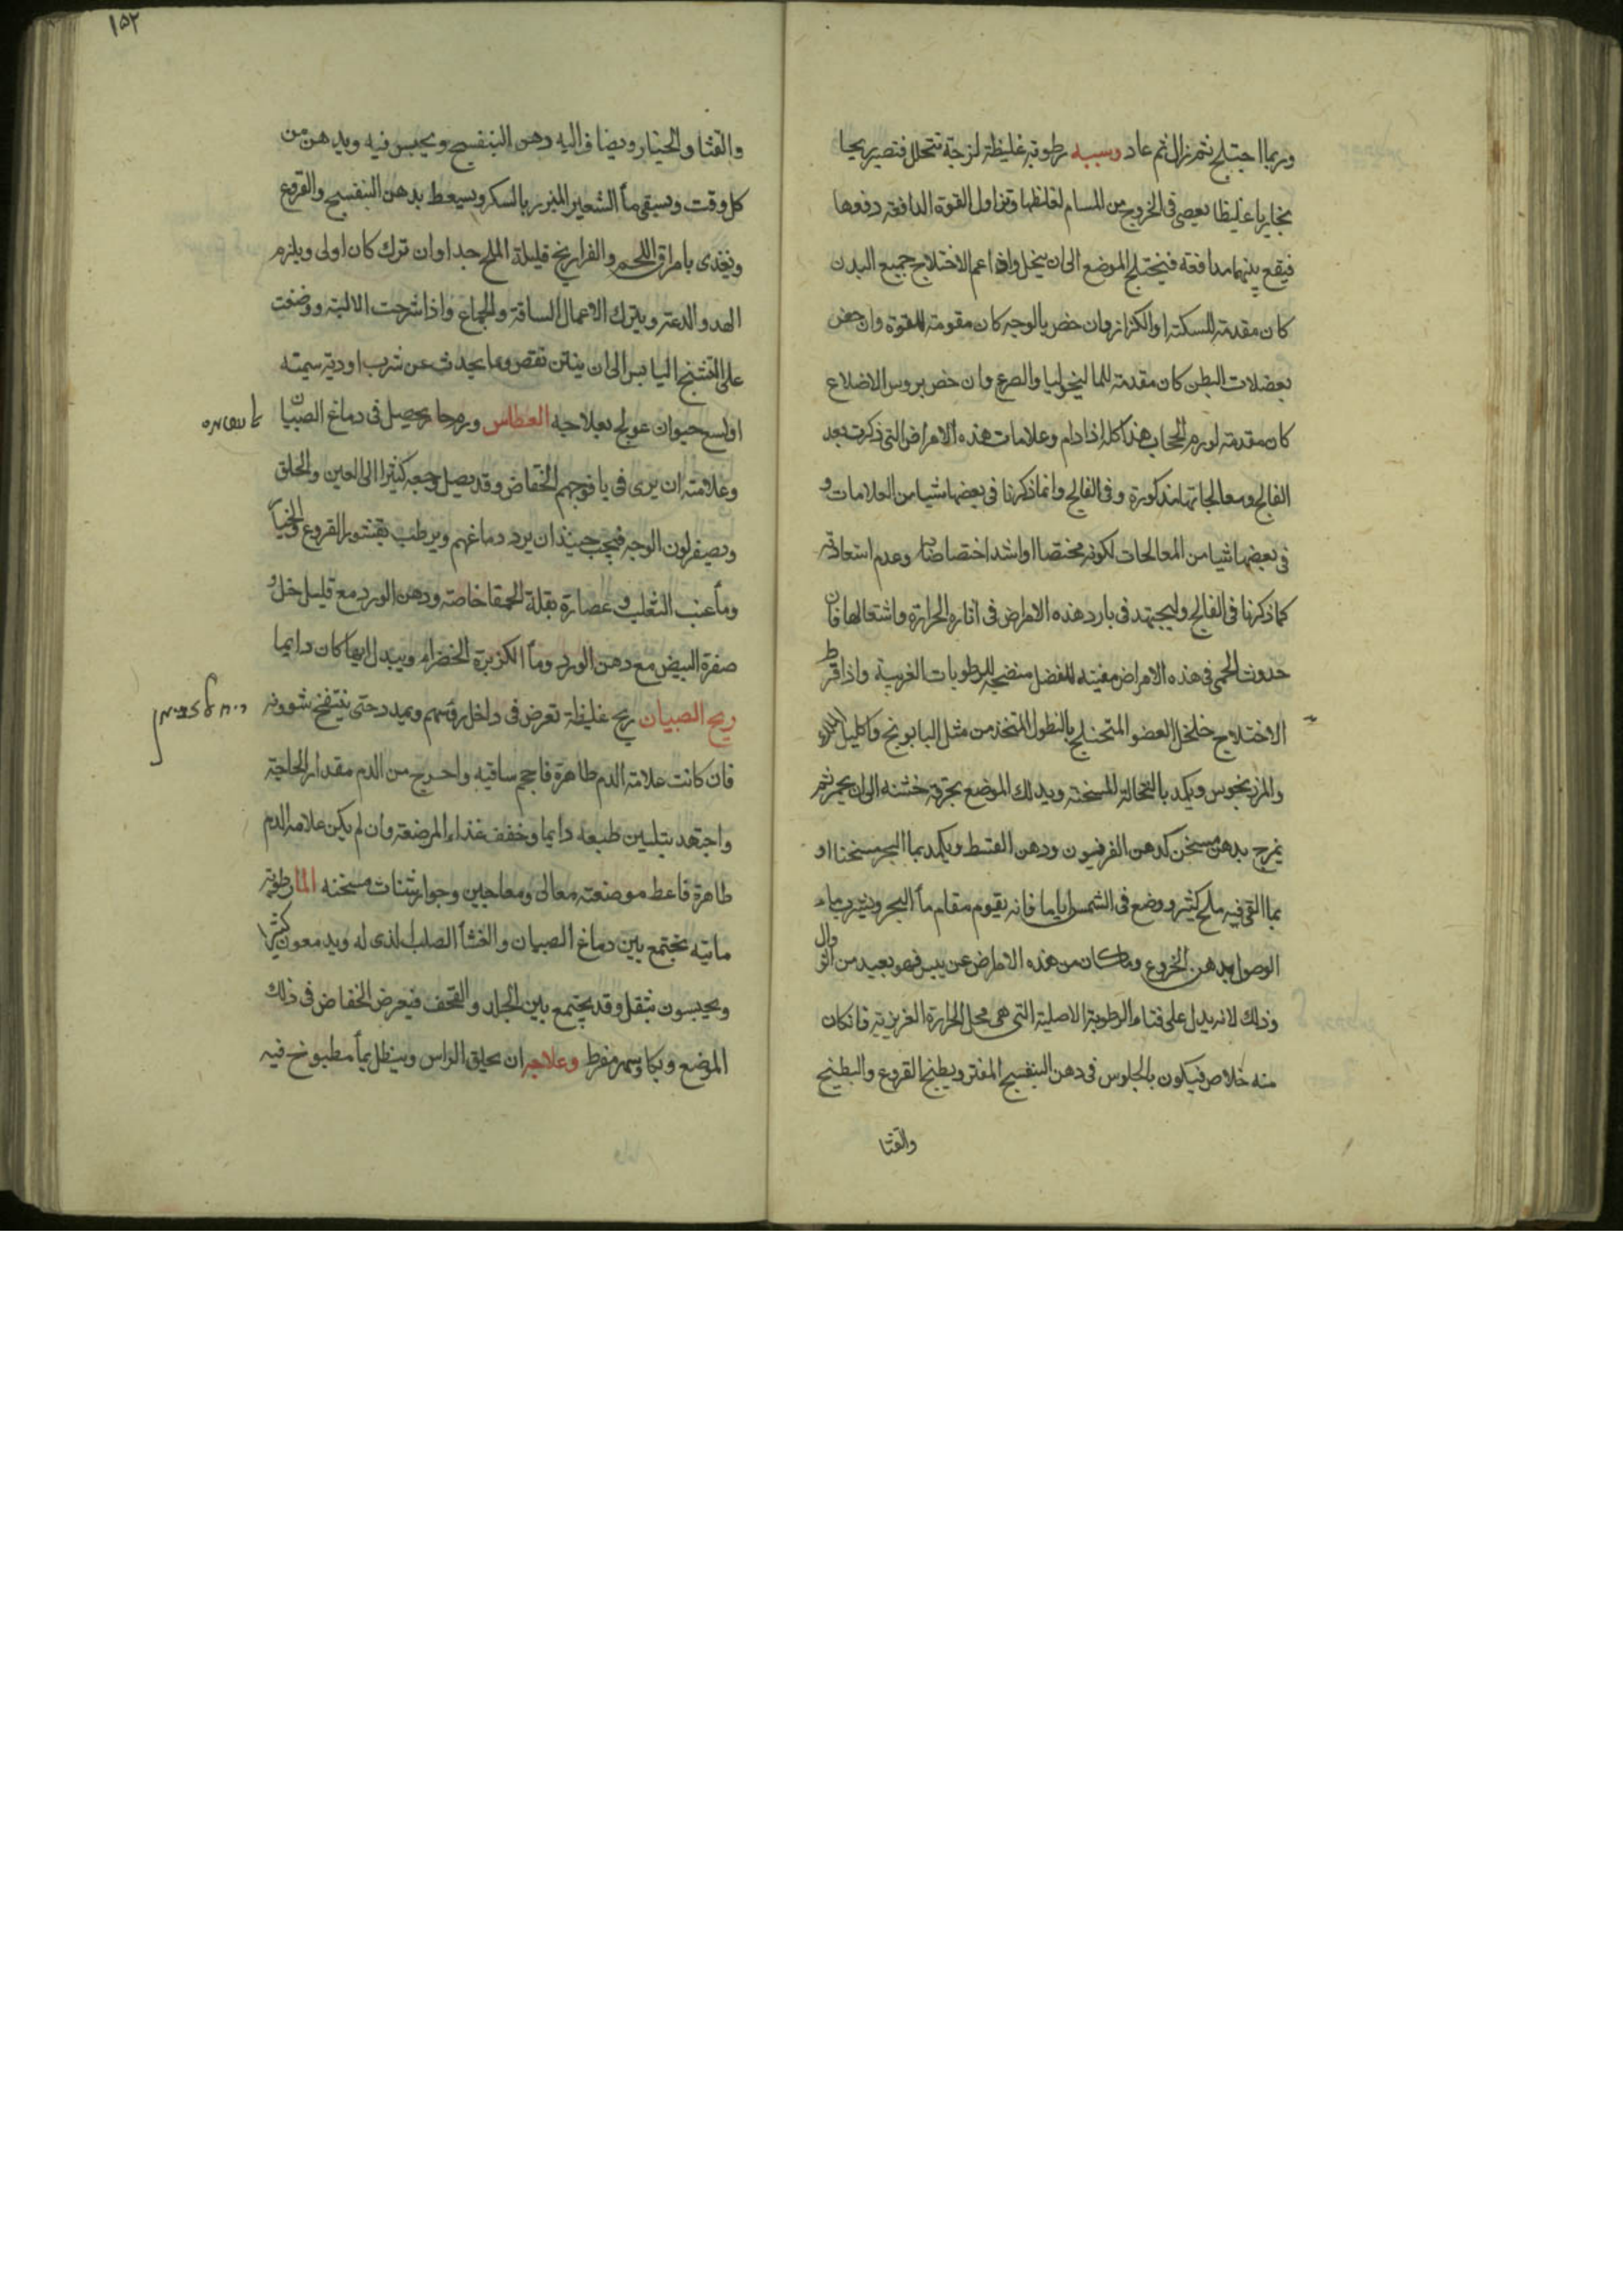 وربما اختلج ثم زال ثم عاد وسببه رطوبة غليظة لزجة تتحلل فتصير ريحا
بخاريا غليظا يعصى فى الخروج من المسام لغلظها وتزاول القوة الدافعة دفعها
فيقع بينهما مدافعة فيختلج الموضع الى ان يتحل واذا عم الاختلاج جميع البدن
كان مقدمة للسكتة او الكزاز وان خص بالوجه كان مقومة للقوة وان خص
بعضلات البطن كان مقدمة للماليخوليا والصرع وان خص بروس الاضلاع
كان مقدمة لورم الحجاب هذا كله اذا دام وعلامات هذه الامراض التى ذكرت بعد
الفالج ومعالجاتها مذكورة وفى الفالج وانما ذكرنا فى بعضها شيا من العلامات و
فى بعضها شيا من المعالجات لكونه مختصا او اشد اختصاصا به وعدم استعادته
كما ذكرنا فى الفالج وليجتهد فى بارد هذه الامراض فى اثارة الحرارة واشتعالها فان
حدوث الحمى فى هذه الامراض مفيته للفضل منضجه للرطوبات الغريبة واذا فرط
الاختلاج خلخل العضو المختلج بالنطول المتخذ من مثل البابونج واكليل الملك
والمرزنجوس ويكمد بالنخالة المسخنة ويدلك الموضع بخرقة خشنه الى ان يحمر ثم
يمرخ بدهن مسخن كدهن الفرفيون ودهن القسط ويكمد بما البحر مسخنا او
بما القى فيه ملح كثير ووضع فى الشمس اياما فانه يقوم مقام مأ البحر ويشرب ماء
الاصول بدهن الخروع وما كان من هذه الامراض عن يبس فهو بعيد من الزوال
وذلك لانه يدل على فناء الرطوبة الاصلية التى هى محل الحرارة الغريزية فان كان
منه خلاص فيكون بالجلوس فى دهن البنفسج المفتر وبطبخ القروع والبطيخ
والقثا
١٥٢
والقثا والخيار ويضاف اليه دهن البنفسج ويحبس فيه ويدهن من
كل وقت ويسقى مأ الشعير المبزور بالسكر ويسعط بدهن البنفسج والقرع
ويغذى بامراق اللحم والفراريخ قليلة الملح جدا وان ترك كان اولى ويلزم
الهدو والدعة ويترك الاعمال الساقة والجماع واذا شرحت الالية ووضعت
على التشنج اليابس الى ان ينتن نقص وما يحدث عن شرب ادوية سمية
او لسع حيوان عولج بعلاجه العطاس ورم حار يحصل فى دماغ الصبيان
وعلامته ان يرى فى يافوجهم انخفاض وقد يصل وجعه كثيرا الى العين والحلق
ويصفر لون الوجه فيجب حينئذ ان يبرد دماغهم ويرطب بقشور القروع والخيار
ومأ عنب الثعلب وعصارة بقلة الحمقا خاصة ودهن الورد مع قليل خل و
صفرة البيض مع دهن الورد ومأ الكزبرة الخضراء ويبدل ايها كان دايما
ريح الصبيان ريح غليظة تعرض فى داخل رؤسهم ويمدد حتى ينتفخ شوونه
فان كانت علامة الدم ظاهرة فاحجم ساقيه واخرج من الدم مقدار الحاجة
واجتهد بتليين طبعه دايما وخفف غذاء المرضعة وان لم يكن علامة الدم
ظاهرة فاعط مرضعته معالى ومعاجين وجوارشنات مسخنه الما رطوبة
مائية تجتمع بين دماغ الصبيان والغشأ الصلب الذى له ويدمعون كثيرا
ويحسون بثقل وقد يجتمع بين الجلد والقحف فيعرض انخفاض فى ذلك
الموضع وبكا وسهر مفرط وعلاجه ان يحلق الراس وينطل بمأ مطبوخ فيه